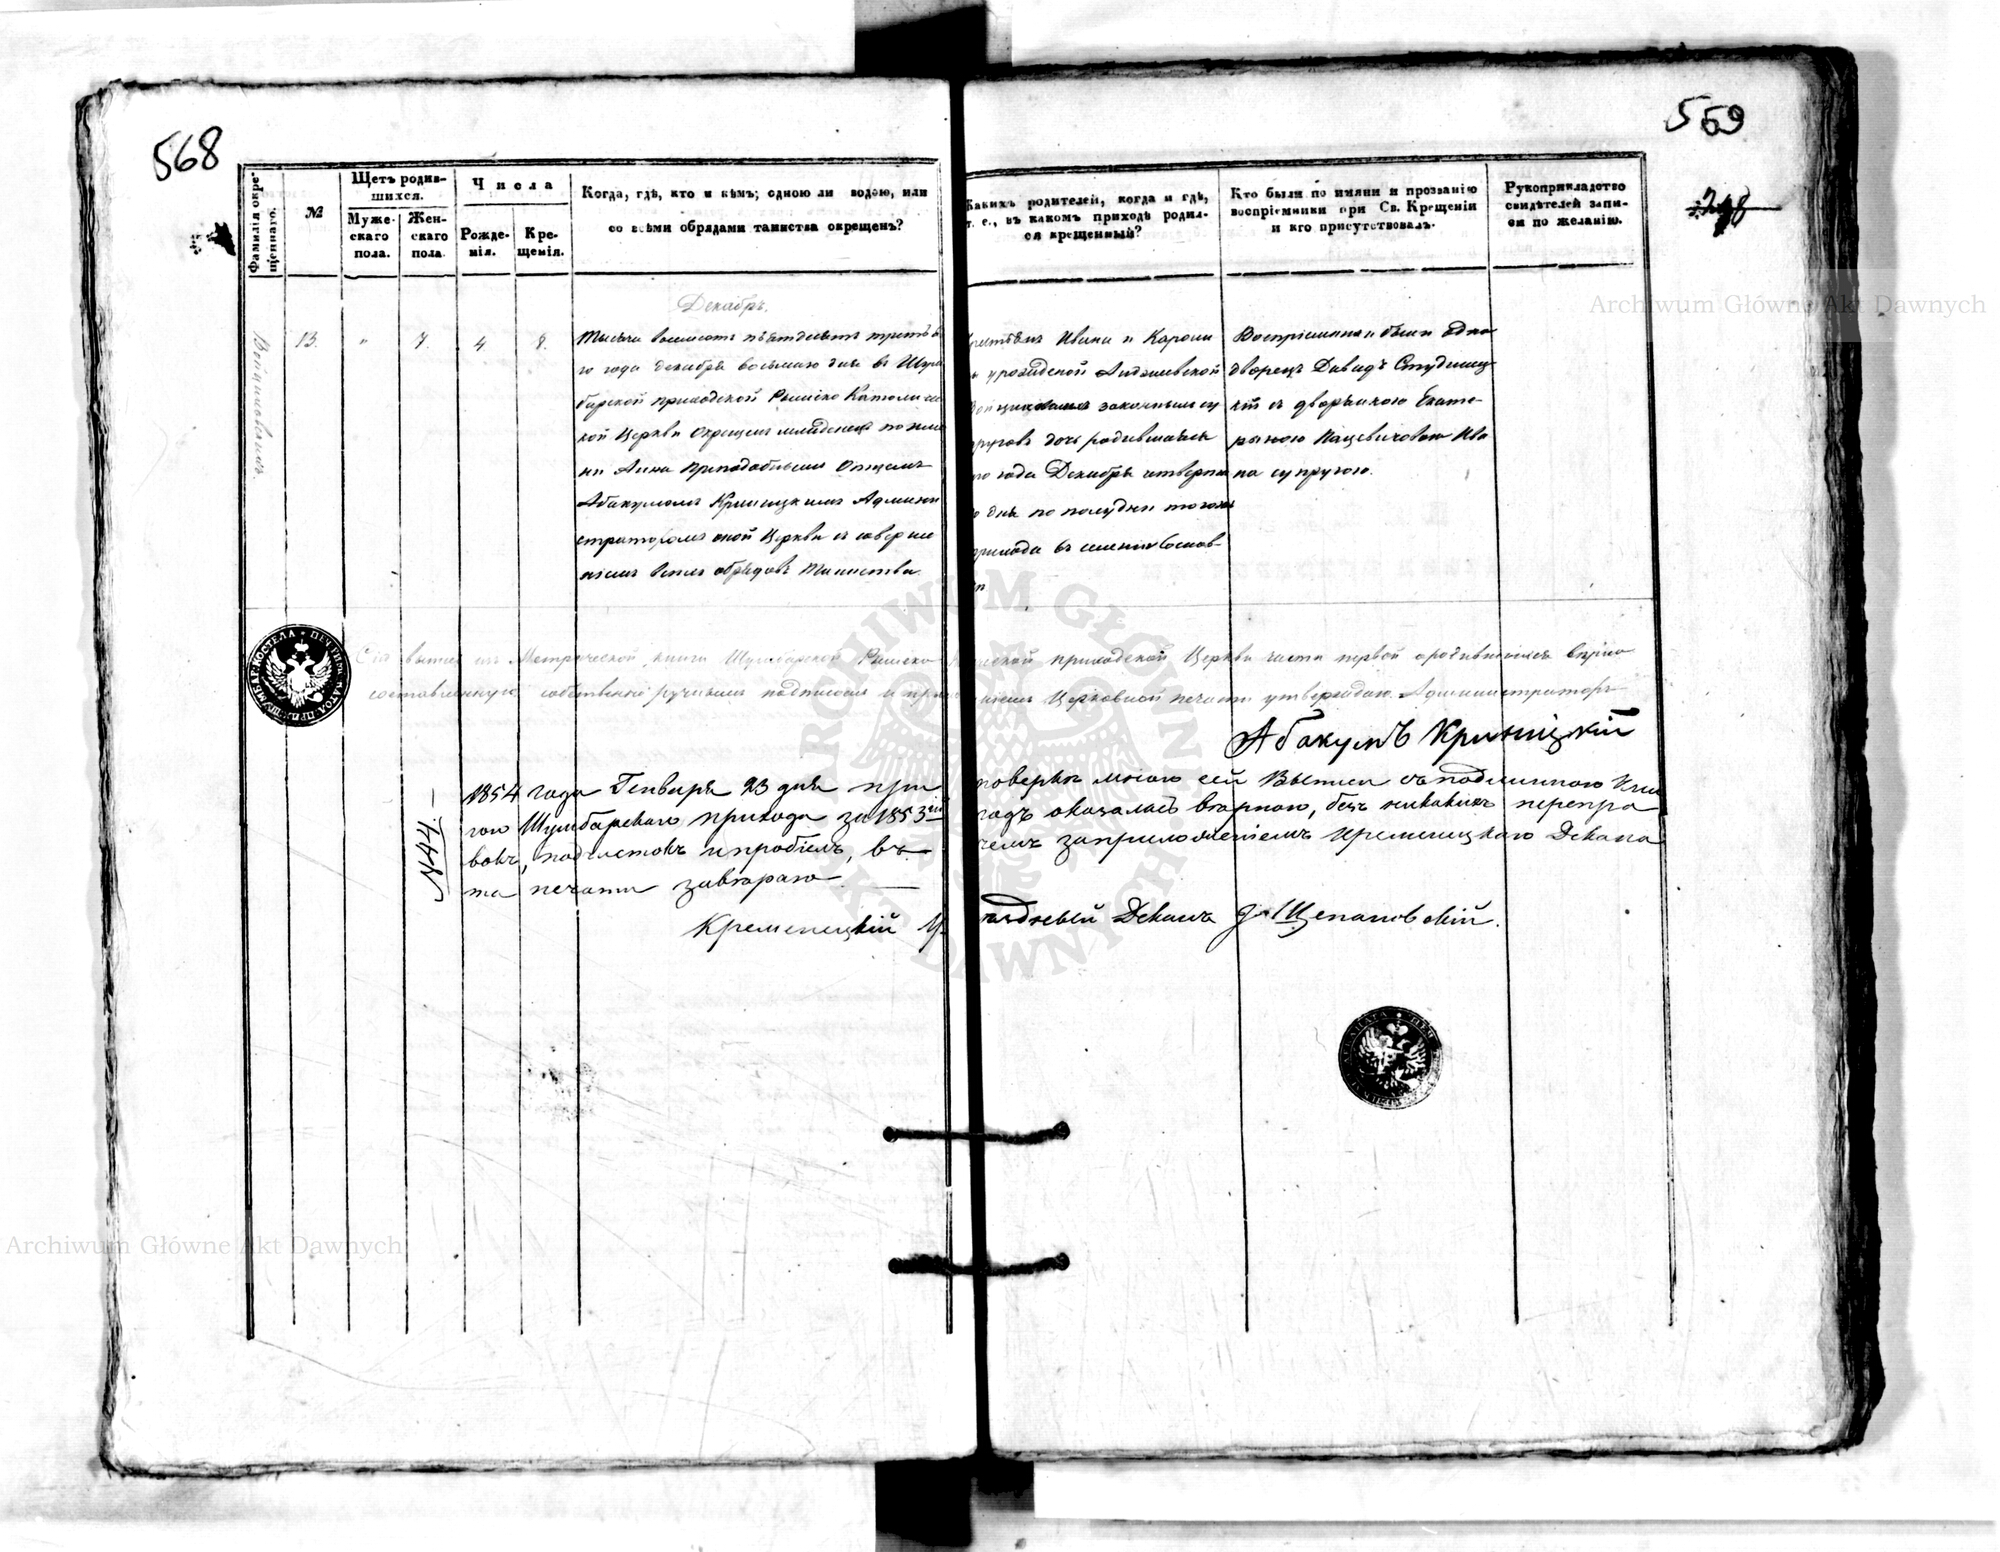 568
559
248
Фамилія окре-
щеннаго.
№
Щетъ родив-
шихся.
Муже-
скаго
пола.
Жен-
скаго
пола.
Числа
Рожде-
нія.
Кре-
щенія.
Когда, гдѣ, кто и кѣмъ; одною ли водою, или
со всѣми обрядами таинства окрещенъ?
Какихъ родителей, когда и гдѣ,
т. е., въ какомъ приходѣ родил-
ся крещенный?
Кто были по имяни и прозванію
воспріемники при Св. Крещеніи
и кто присутствовалъ.
Рукоприкладство
свидѣтелей запи-
си по желанію.
Декабрь.
13. " 7. 4. 8.
Тысяча восемсотъ пятдесятъ третья
го года декабря восьмаго дня въ Шум
барской приходской Римско Католичес
кой Церкви Окрещенъ младенецъ по име
ни Анна Преподобнымъ Отцемъ
Абакумомъ Криницкимъ Админи
страторомъ оной Церкви съ соверше
ніемъ всѣхъ обрядовъ Таинства.
Ивана и Кароли
урожденой
законныхъ су
пруговъ дочь родившаяся
го года Декабря четверта
го дня по полудни тогожъ
прихода въ селеніи
Воспріемниками были одно
дворецъ Давидъ Студниц
кій съ дворянкою Екате
риною Пацевичовою Ива
на супругою.
Сія выпись изъ Метрической книги Шумбарской Римско приходской Церкви части первой о родившихся
составленную собственно ручнымъ подписомъ и Церковной печати утверждаю. Администраторъ
Абакумъ Криницкій
№44.
1854 года Генваря 23 дня при повѣркѣ мною сей Выписи съ подлинною Кни
гою Шумбарскаго прихода за 1853 годъ оказалась вѣрною, безъ никакихъ перепра
вокъ, подчистокъ и пробѣлъ, въ чемъ заприложеніемъ Кременецкаго Декана
та печати завѣряю.
Кременецкій Декан Щепановскій.
Archiwum Główne Akt Dawnych
Archiwum Główne Akt Dawnych
ARCHIWUM GŁÓWNE AKT DAWNYCH